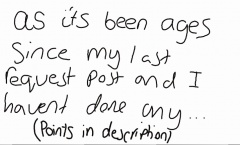 as its been ages
Since my last
request post and I
havent done any...
(Points in description)